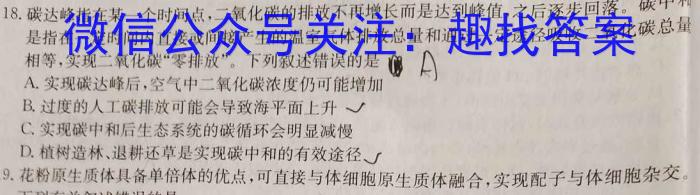 18. 碳达峰指在某一个时间点,二氧化碳的排放不再增长而是达到峰值,之后逐步回落。碳中和
是指在 直接或间接产生的温室气体排放总量和 二氧化碳总量
微信公众号关注:趣找答案
相等,实现二氧化碳“零排放”。下列叙述错误的是 A
A. 实现碳达峰后,空气中二氧化碳浓度仍可能增加
B. 过度的人工碳排放可能会导致海平面上升
C. 实现碳中和后生态系统的碳循环会明显减慢
D. 植树造林、退耕还草是实现碳中和的有效途径
9. 花粉原生质体具备单倍体的优点,可直接与体细胞原生质体融合,实现配子与体细胞杂交。